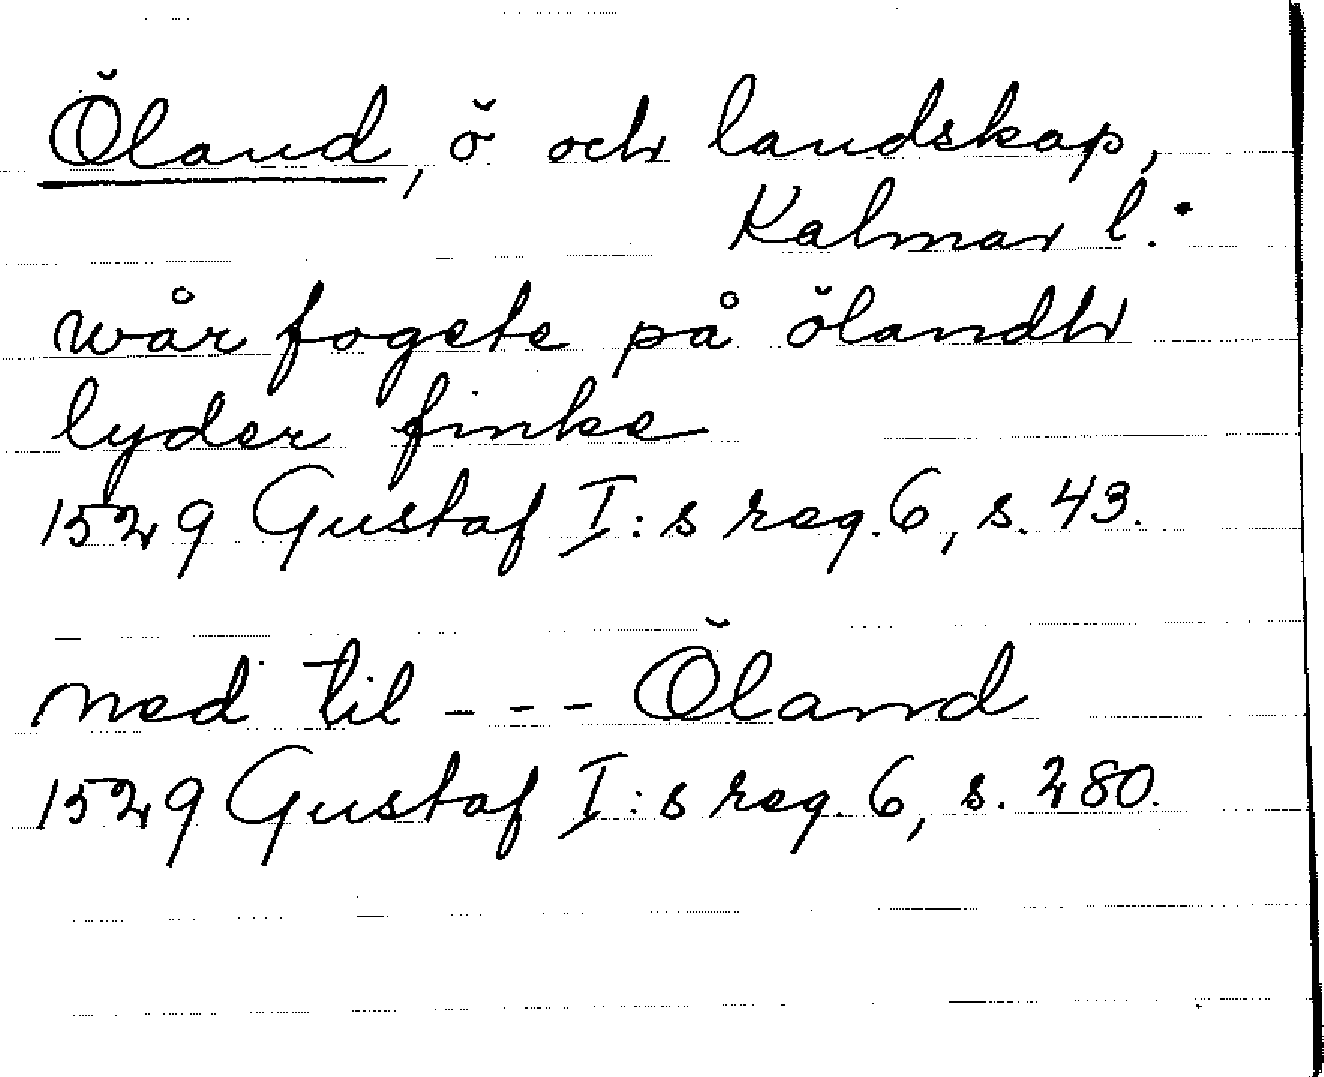 Öland, ö och landskap,
Kalmar l.
wår fogete på ölandh
lyder finke
1529 Gustaf I:s reg. 6, s. 43.
ned til - - - Öland
1529 Gustaf I:s reg. 6, s. 280.